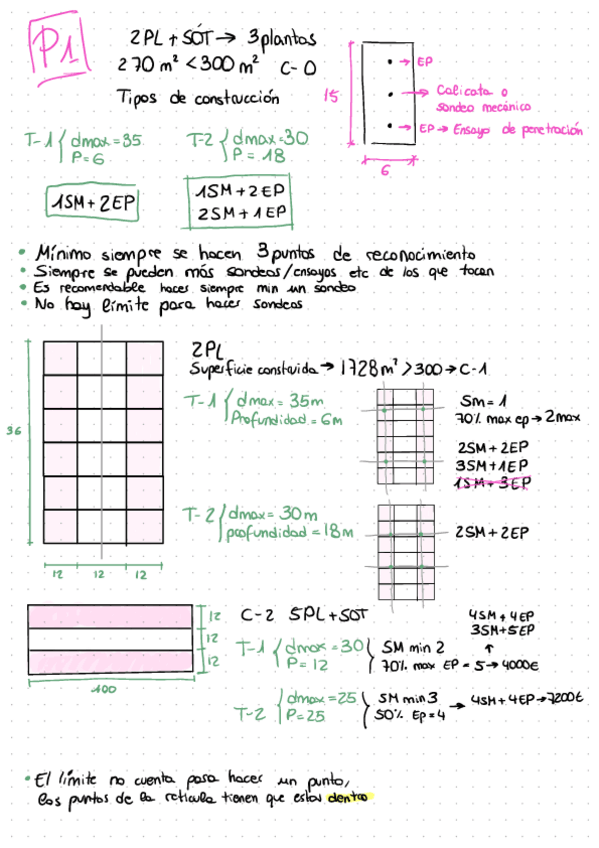 P1
2PL + SÓT → 3 plantas
270 m² < 300 m² C-0
Tipos de construcción
15
→ EP
→ Calicata o sondeo mecánico
EP → Ensayo de penetración
6
T-1 { dmax = 35
P = 6
1SM + 2EP
T-2 { dmax = 30
P = 18
1SM + 2EP
2SM + 1EP
• Mínimo siempre se hacen 3 puntos de reconocimiento
• Siempre se pueden más sondeos/ensayos etc de los que tocan
• Es recomendable hacer siempre min un sondeo
• No hay límite para hacer sondeos
36
12 12 12
2PL
Superficie construida → 1728 m² > 300 → C-1
T-1 { dmax = 35m
Profundidad = 6m
Sm = 1
70% max ep → 2max
2SM + 2EP
3SM + 1EP
1SM + 3EP
T-2 { dmax = 30m
profundidad = 18m
2SM + 2EP
12
12
12
100
C-2 5PL + SOT
4SM + 4EP
3SM + 5EP
↑
T-1 { dmax = 30
P = 12
SM min 2
70% max EP = 5 → 4000€
T-2 { dmax = 25
P = 25
SM min 3
50% Ep = 4
→ 4SM + 4EP → 7200€
• El límite no cuenta para hacer un punto,
los puntos de la retícula tienen que estar dentro